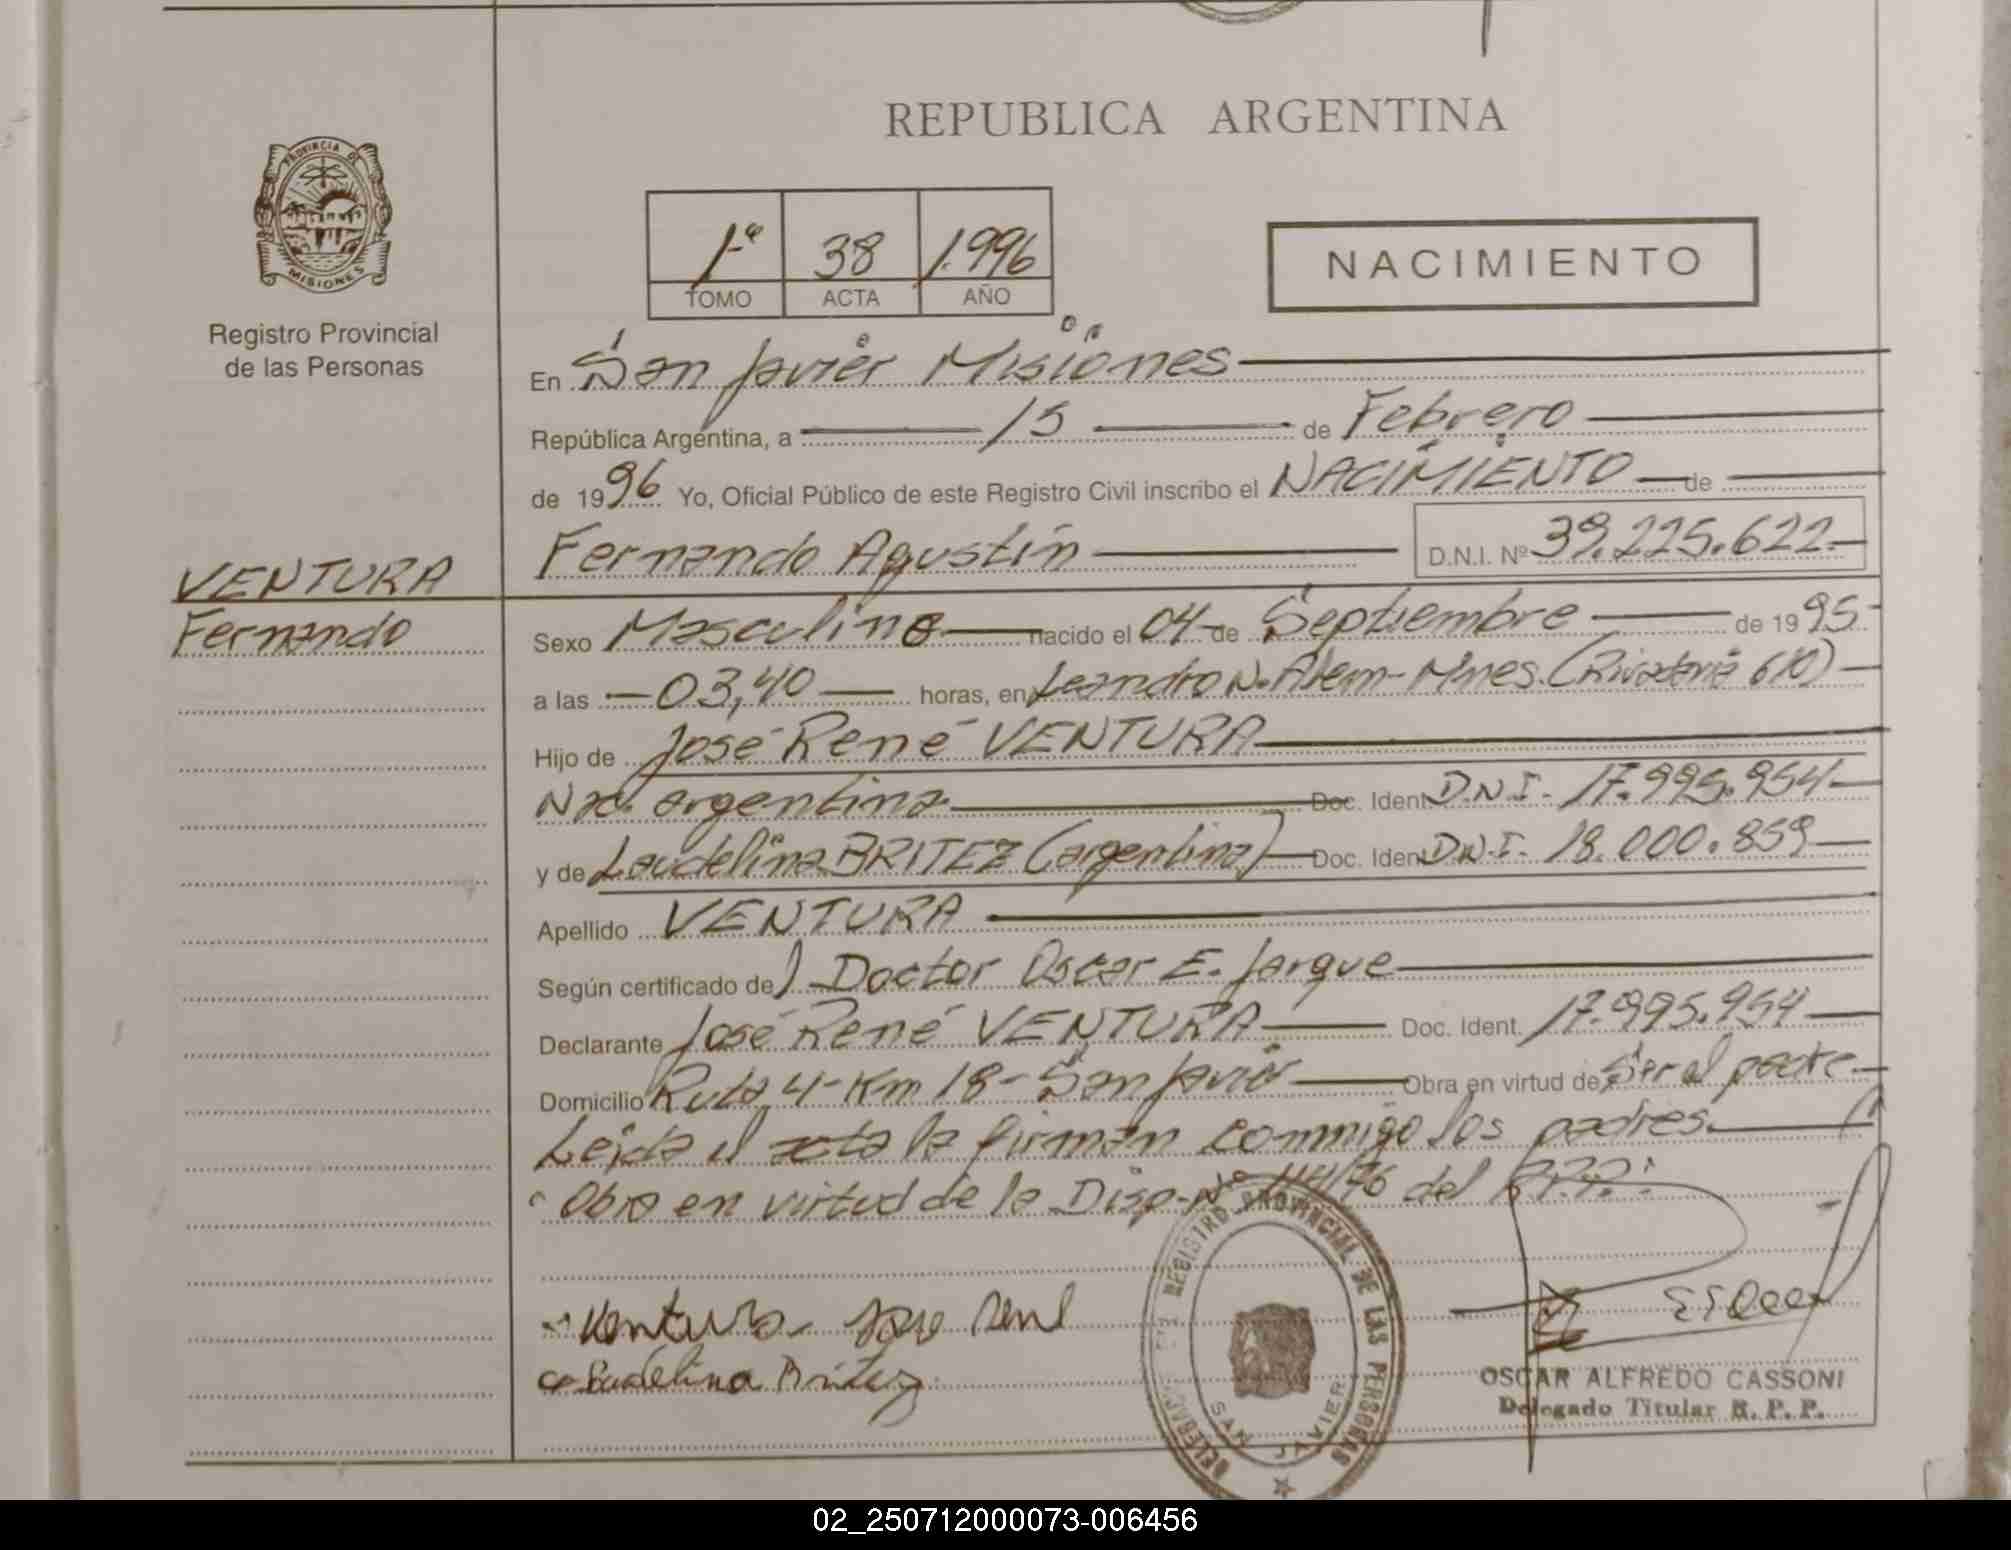 REPUBLICA ARGENTINA
PROVINCIA DE
MISIONES
Registro Provincial
de las Personas
1º 38 1.996
TOMO ACTA AÑO
NACIMIENTO
En San Javier Misiones
República Argentina, a 15 de Febrero
de 1996 Yo, Oficial Público de este Registro Civil inscribo el NACIMIENTO de
Fernando Agustín D.N.I. Nº 39.225.622.
VENTURA
Fernando
Sexo Masculino nacido el 04 de Septiembre de 1995
a las 03,40 horas, en Leandro N. Alem - Mnes. (Rivadavia 610)
Hijo de José René VENTURA
Nac. argentina. Doc. Ident. D.N.I. 17.995.954
y de Laudelina BRITEZ (argentina) Doc. Ident. D.N.I. 18.000.859
Apellido VENTURA
Según certificado del Doctor Oscar E. Jarque
Declarante José René VENTURA. Doc. Ident. 17.995.954
Domicilio Ruta 4 - Km 18 - San Javier Obra en virtud de Ser el padre
Leida el acta la firman conmigo los padres.
Obra en virtud de la Disp. Nº 114/96 del R.P.P.
Ventura Jose Rene
Laudelina Britez
REGISTRO PROVINCIAL DE LAS PERSONAS
SAN JAVIER
OSCAR ALFREDO CASSONI
Delegado Titular R. P. P.
02_250712000073-006456